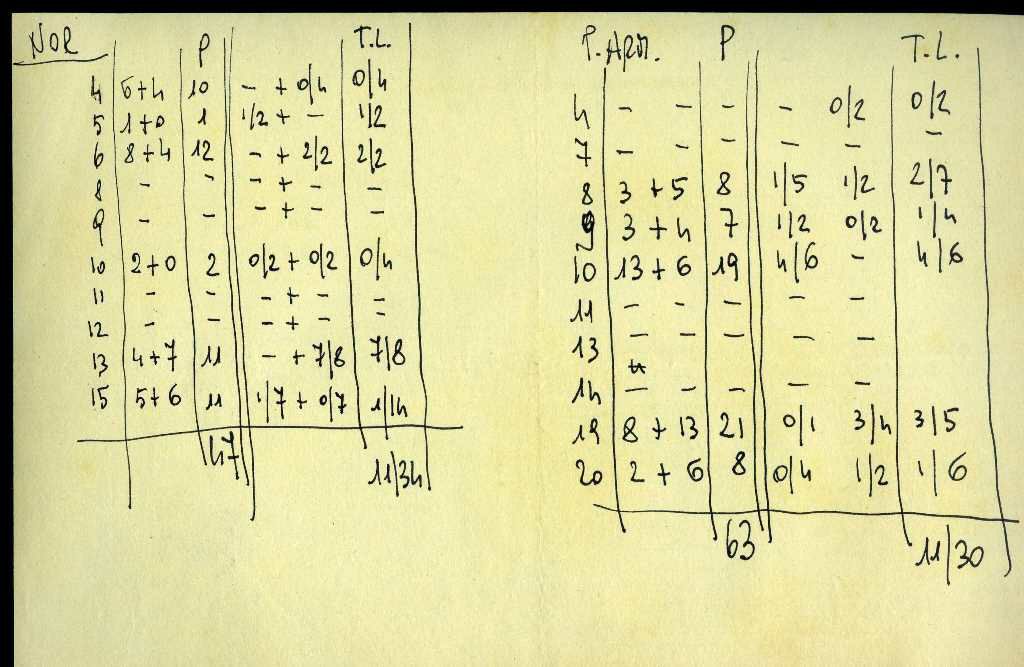 NOR P T.L.
4 6+4 10 - + 0/4 0/4
5 1+0 1 1/2 + - 1/2
6 8+4 12 - + 2/2 2/2
8 - - - + - -
9 - - - + - -
10 2+0 2 0/2 + 0/2 0/4
11 - - - + - -
12 - - - + - -
13 4+7 11 - + 7/8 7/8
15 5+6 11 1/7 + 0/7 1/14
47 11/34
P. ARM. P T.L.
4 - - - - 0/2 0/2
7 - - - - - -
8 3 + 5 8 1/5 1/2 2/7
9 3 + 4 7 1/2 0/2 1/4
10 13 + 6 19 4/6 - 4/6
11 - - - - -
13 - - - - -
14 - - - - -
19 8 + 13 21 0/1 3/4 3/5
20 2 + 6 8 0/4 1/2 1/6
63 11/30